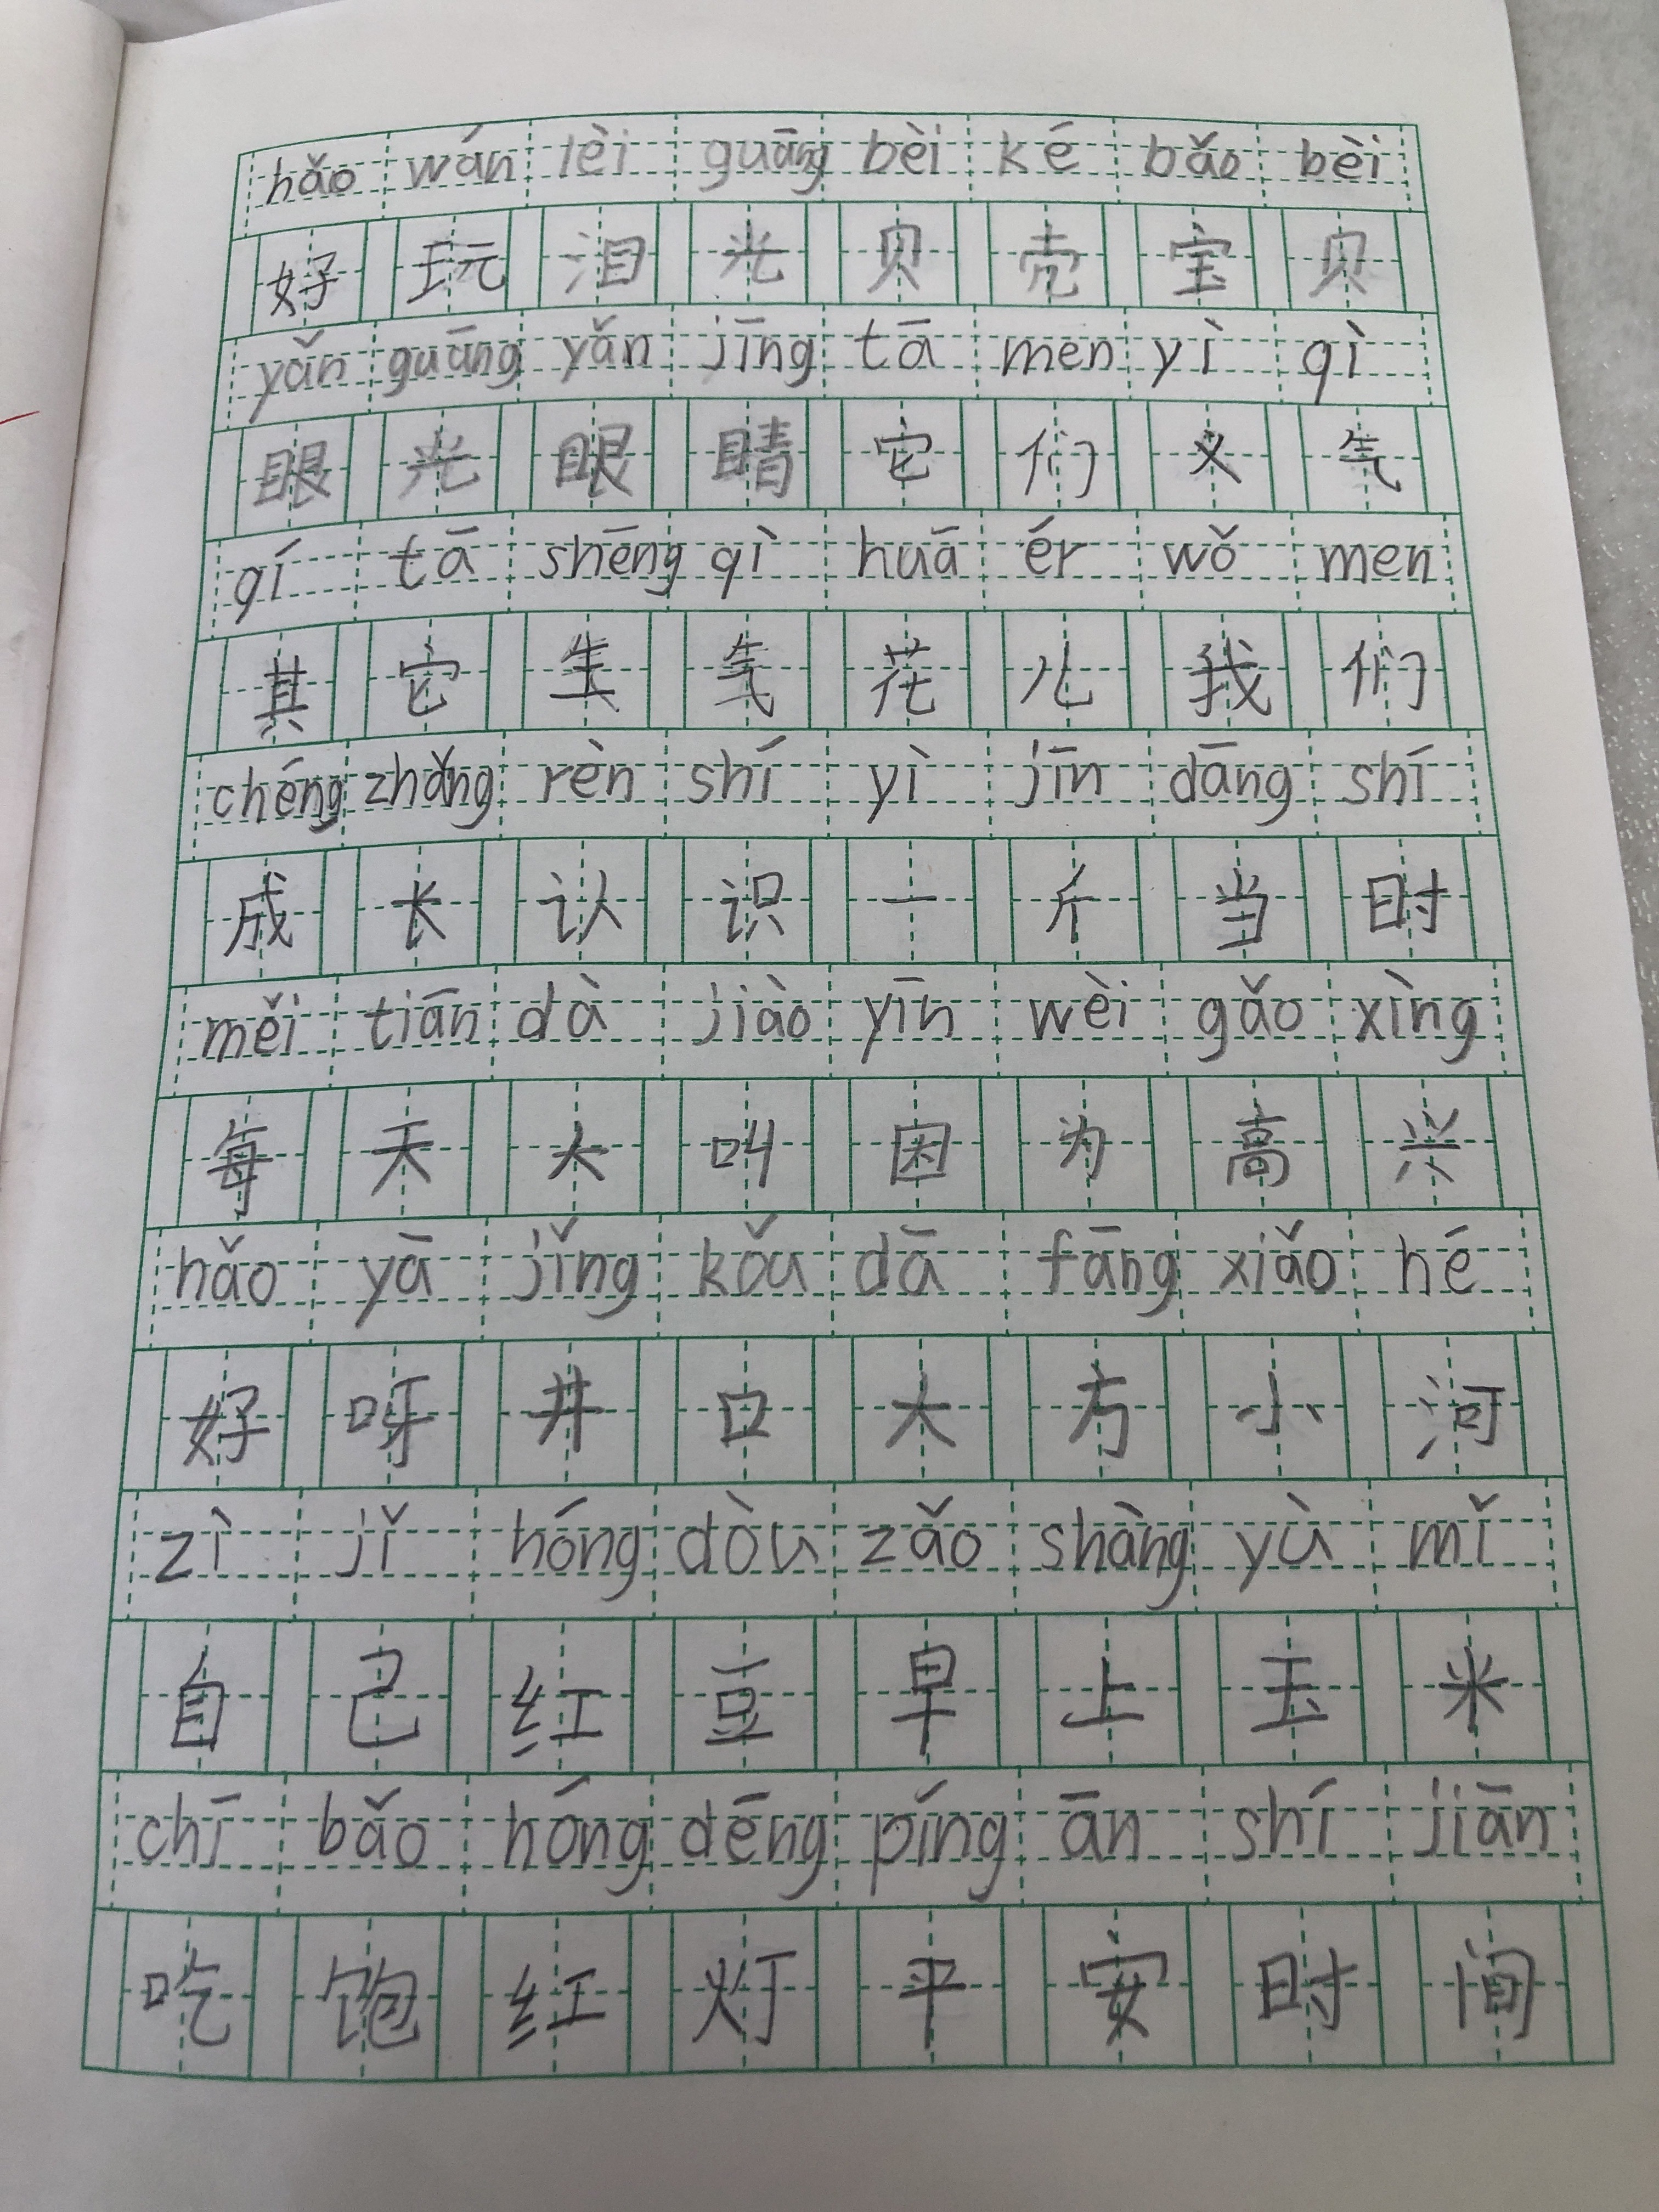 hǎo wán lèi guāng bèi ké bǎo bèi
好玩泪光贝壳宝贝
yǎn guāng yǎn jīng tā men yì qì
眼光眼睛它们义气
qí tā shēng qì huā ér wǒ men
其它生气花儿我们
chéng zhǎng rèn shí yì jīn dāng shí
成长认识一斤当时
měi tiān dà jiào yīn wèi gǎo xìng
每天大叫因为高兴
hǎo yā jǐng kǒu dā fāng xiǎo hé
好呀井口大方小河
zì jǐ hóng dòu zǎo shàng yù mǐ
自己红豆早上玉米
chī bǎo hóng dēng píng ān shí jiān
吃饱红灯平安时间